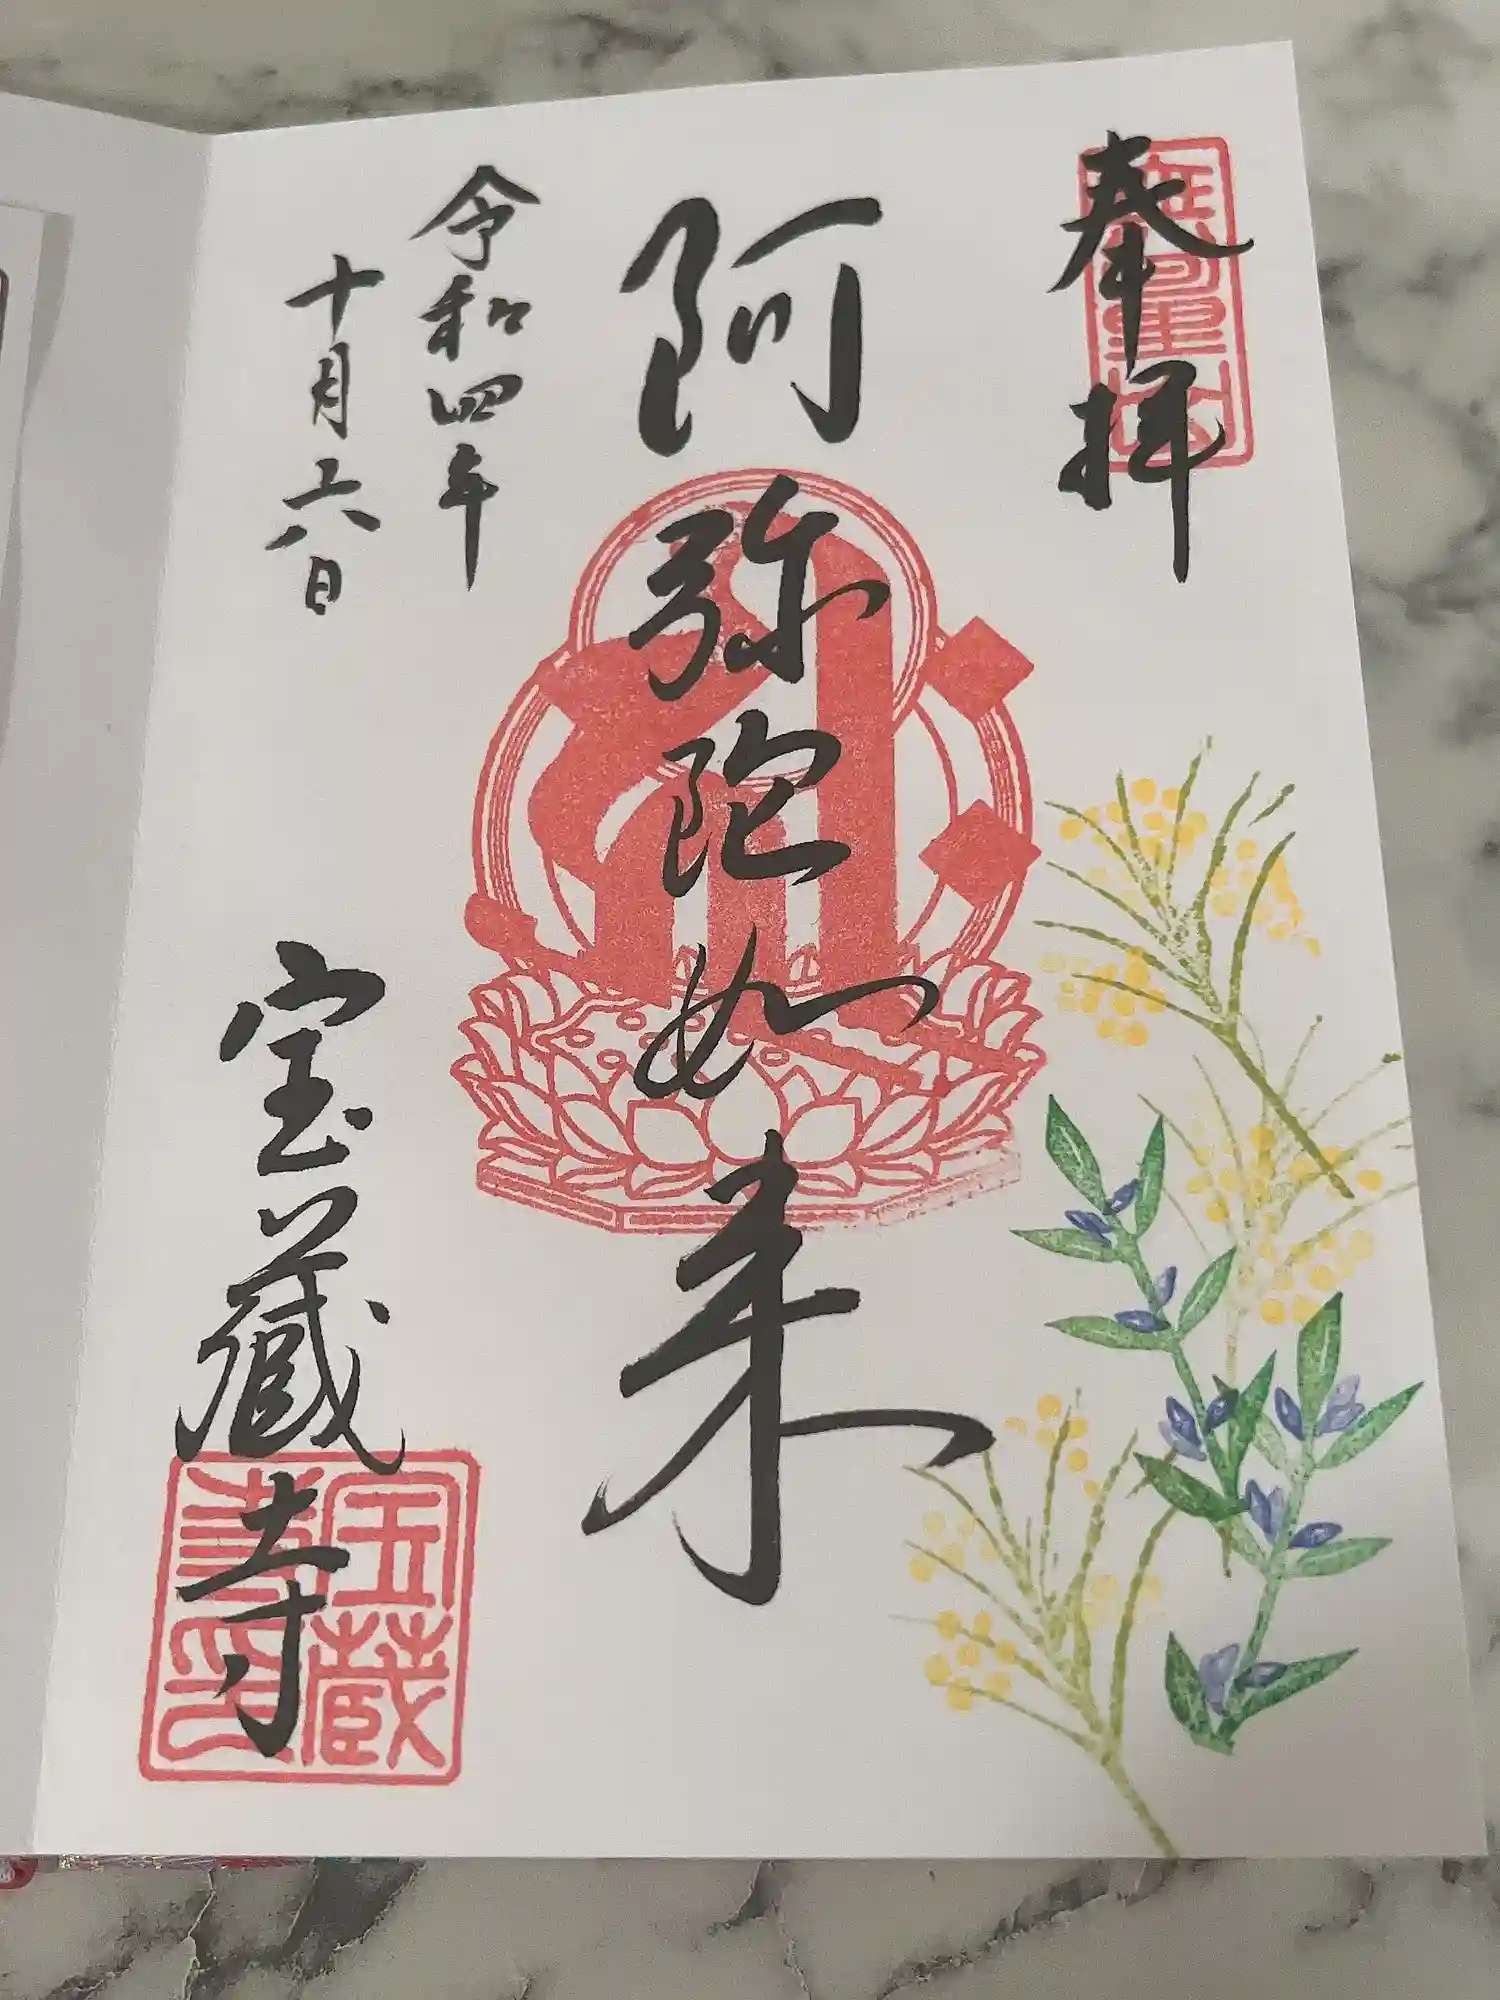 奉拝
阿弥陀如来
令和四年
十月六日
宝蔵寺
玉蔵
寺印